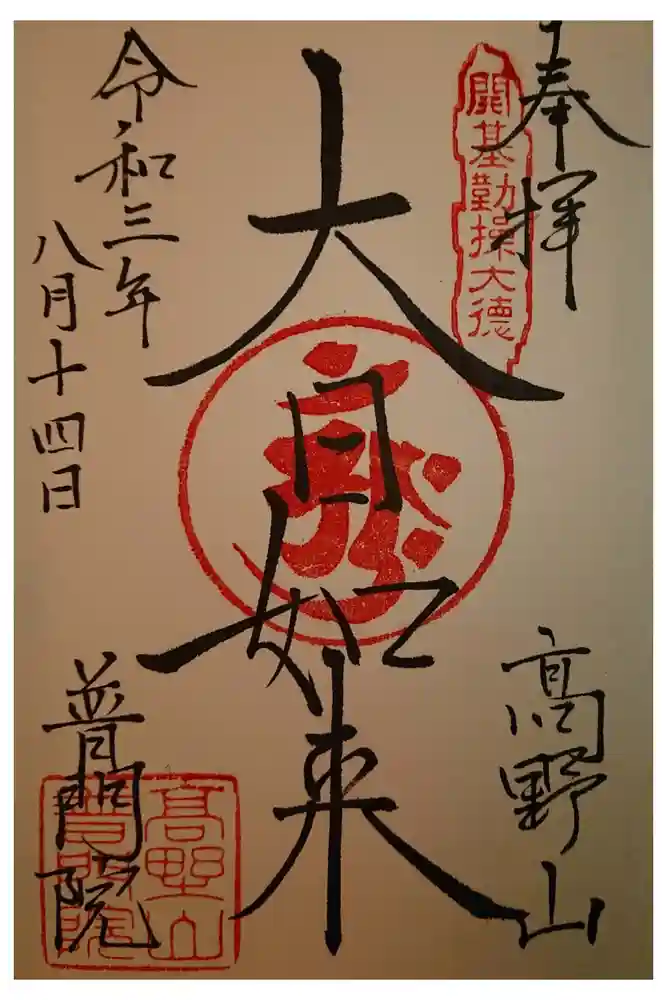 奉拝
開基勤操大徳
高野山
大日如来
令和三年
八月十四日
普門院
高野山
普門院